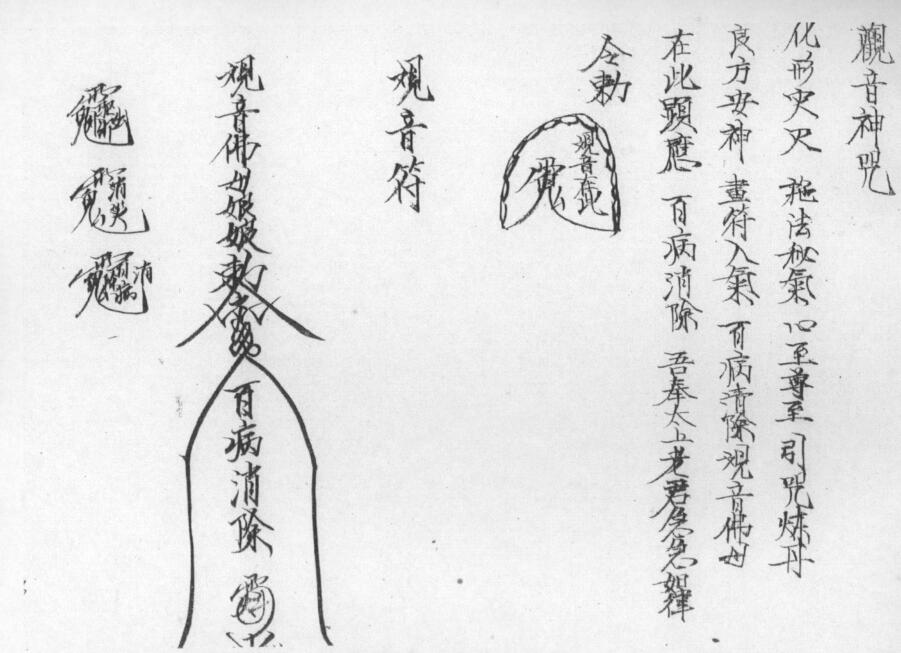 觀音神咒
化形史 施法秘氣 心至尊至 引咒煉丹
良方安神 畫符入氣 百病清除 观音佛母
在此顯應 百病消除 吾奉太上老君急急如律
令勅
观音在此
观音符
观音佛母娘娘勅令
百病消除
消
病